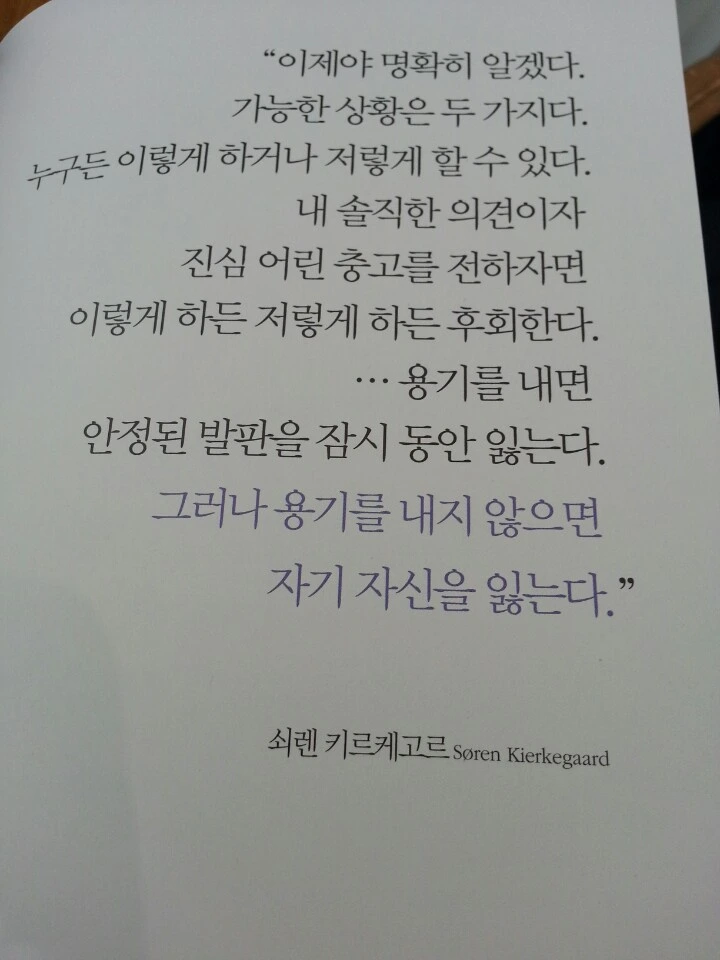 “이제야 명확히 알겠다.
가능한 상황은 두 가지다.
누구든 이렇게 하거나 저렇게 할 수 있다.
내 솔직한 의견이자
진심 어린 충고를 전하자면
이렇게 하든 저렇게 하든 후회한다.
… 용기를 내면
안정된 발판을 잠시 동안 잃는다.
그러나 용기를 내지 않으면
자기 자신을 잃는다.”
쇠렌 키르케고르 Søren Kierkegaard